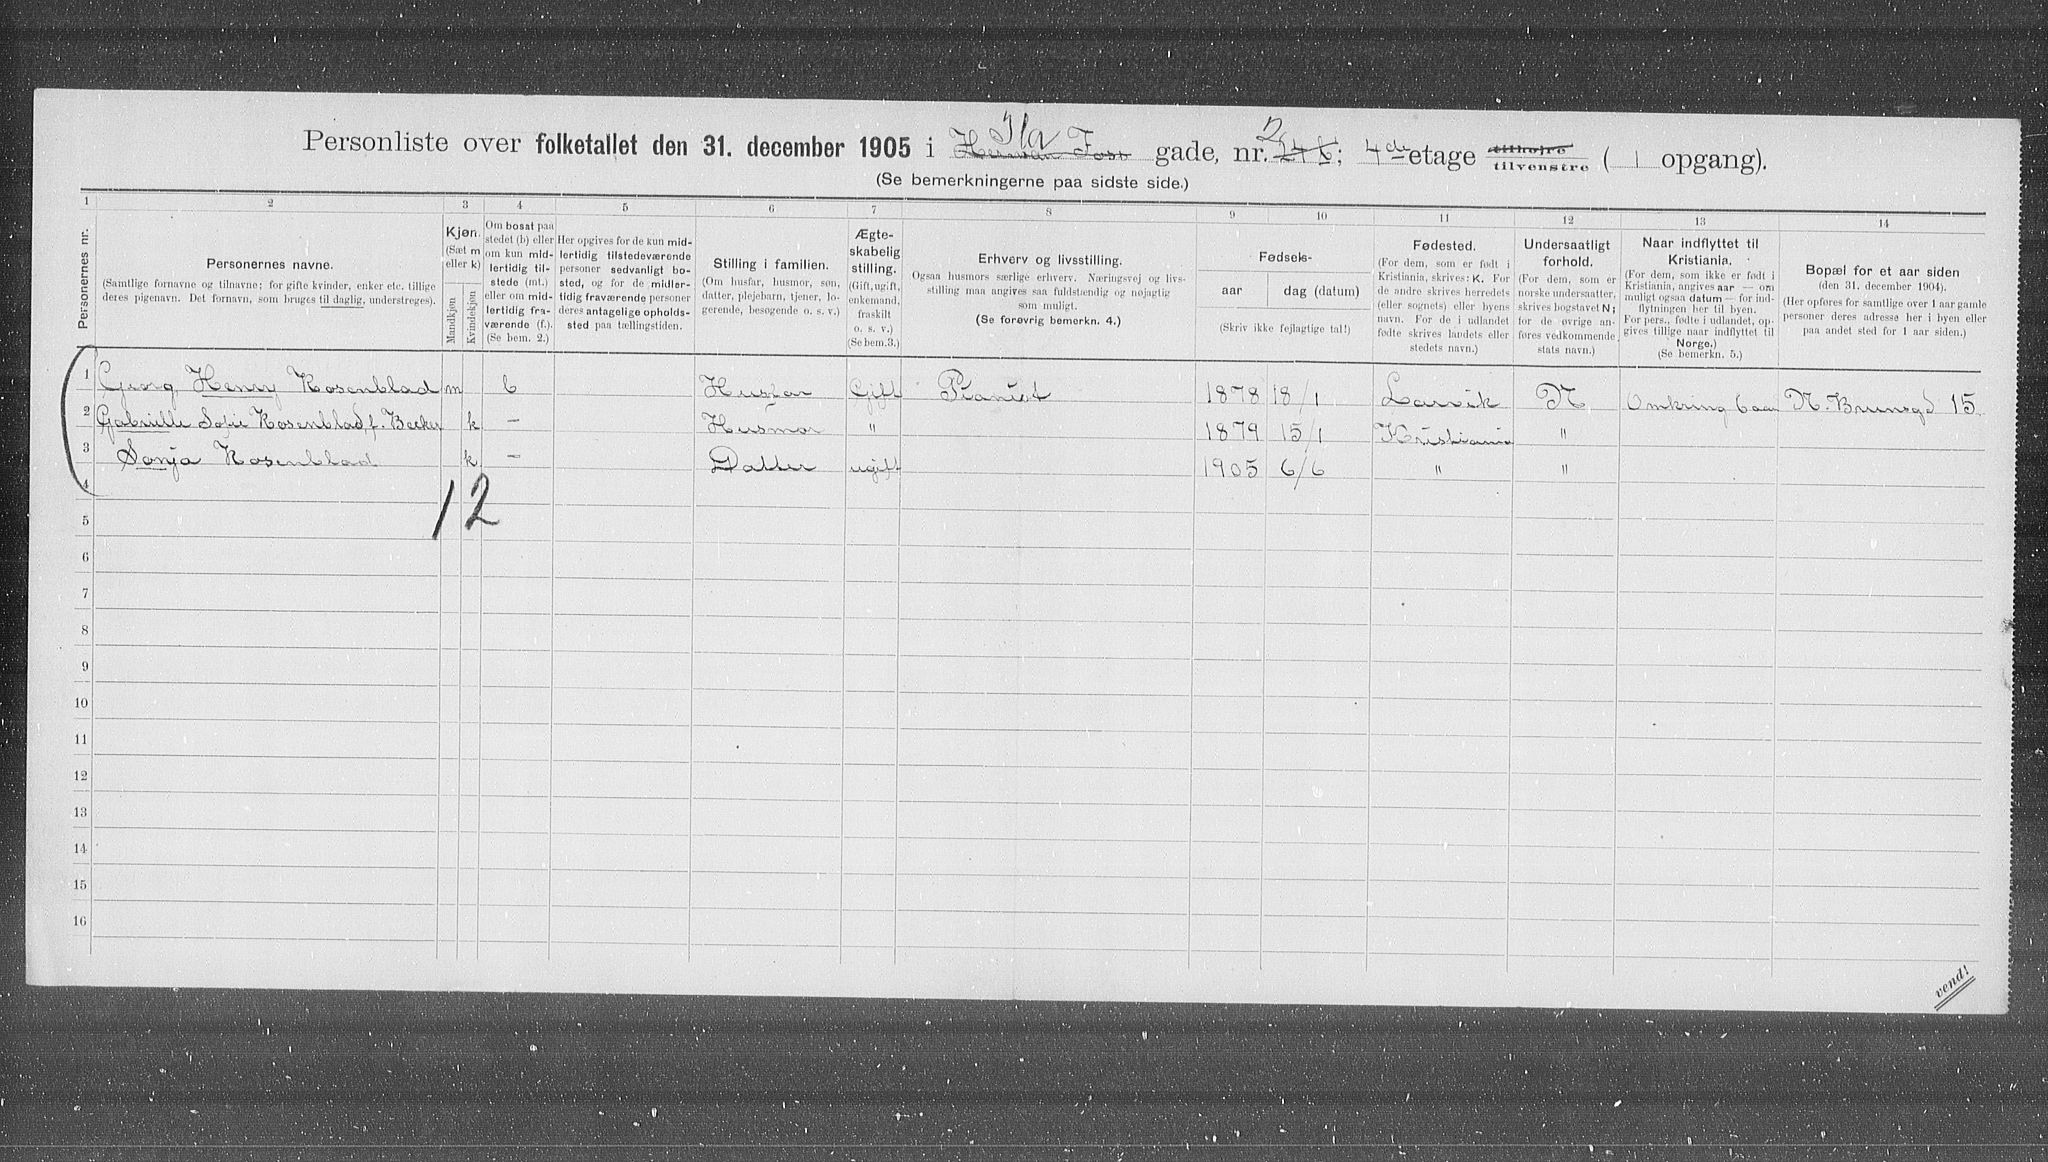 Personliste over folketallet den 31. december 1905 i Herman Foss Ila gade, nr. 2; 4de etage tilhøjre tilvenstre ( 1 opgang).
(Se bemerkningerne paa sidste side.)
1 2 3 4 5 6 7 8 9 10 11 12 13 14
Personernes nr.
Personernes navne.
(Samtlige fornavne og tilnavne; for gifte kvinder, enker etc. tillige
deres pigenavn. Det fornavn, som bruges til daglig, understreges).
Kjøn.
(Sæt m
eller k)
Mandkjøn
Kvindekjøn
Om bosat paa
stedet (b) eller
om kun mid-
lertidig til-
stede (mt.)
eller om mid-
lertidig fra-
værende (f.).
(Se bem. 2.)
Her opgives for de kun mid-
lertidig tilstedeværende
personer sedvanligt bo-
sted, og for de midler-
tidig fraværende personer
deres antagelige opholds-
sted paa tællingstiden.
Stilling i familien.
(Om husfar, husmor, søn,
datter, plejebarn, tjener, lo-
gerende, besøgende o. s. v.)
Ægte-
skabelig
stilling.
(Gift, ugift,
enkemand,
fraskilt
o. s. v.)
(Se bem.3.)
Erhverv og livsstilling.
Ogsaa husmors særlige erhverv. Næringsvej og livs-
stilling maa angives saa fuldstændig og nøjagtig
som muligt.
(Se forøvrig bemerkn. 4.)
Fødsels-
aar
dag (datum)
(Skriv ikke fejlagtige tal!)
Fødested.
(For dem, som er født i
Kristiania, skrives: K. For
de andre skrives herredets
(eller sognets) eller byens
navn. For de i udlandet
fødte skrives landets eller
stedets navn.)
Undersaatligt
forhold.
(For dem, som er
norske undersaatter,
skrives bogstavet N;
for de øvrige an-
føres vedkommende
stats navn.)
Naar indflyttet til
Kristiania.
(For dem, som ikke er født i
Kristiania, angives aar — om
muligt ogsaa datum — for ind-
flytningen her til byen.
For pers., fødte i udlandet, op-
gives tillige naar indflyttet til
Norge.)
(Se bemerkn. 5.)
Bopæl for et aar siden
(den 31. december 1904).
(Her opføres for samtlige over 1 aar gamle
personer deres adresse her i byen eller
paa andet sted for 1 aar siden.)
1 Georg Henry Rosenblad m b Husfar Gift Pianist 1878 18/1 Larvik N Omkring 6 aar N. Brunsgd 15
2 Gabrielle Sofie Rosenblad, f. Becker k — Husmor " 1879 15/1 Kristiania "
3 Sonja Rosenblad k — Datter ugift 1905 6/6 " "
4
12
5
6
7
8
9
10
11
12
13
14
15
16
vend!